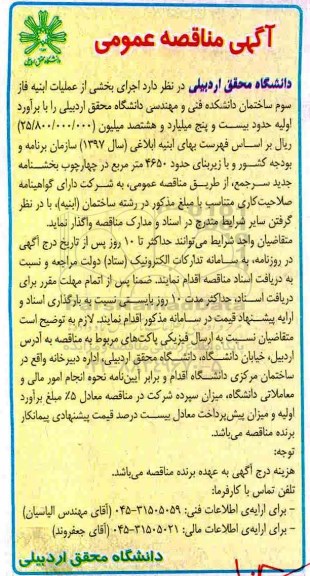 آگهی مناقصه عمومی
دانشگاه محقق اردبیلی
دانشگاه محقق اردبیلی در نظر دارد اجرای بخشی از عملیات ابنیه فاز
سوم ساختمان دانشکده فنی و مهندسی دانشگاه محقق اردبیلی را با برآورد
اولیه حدود بیست و پنج میلیارد و هشتصد میلیون (۲۵/۸۰۰/۰۰۰/۰۰۰)
ریال بر اساس فهرست بهای ابنیه ابلاغی (سال ۱۳۹۷) سازمان برنامه و
بودجه کشور و با زیربنای حدود ۴۶۵۰ متر مربع در چهارچوب بخشنامه
جدید سرجمع، از طریق مناقصه عمومی، به شرکت دارای گواهینامه
صلاحیت‌کاری متناسب با مبلغ مذکور در رشته ساختمان (ابنیه)، با در نظر
گرفتن سایر شرایط مندرج در اسناد و مدارک مناقصه واگذار نماید.
متقاضیان واجد شرایط می‌توانند حداکثر تا ۱۰ روز پس از تاریخ درج آگهی
در روزنامه، به سامانه تدارکات الکترونیک (ستاد) دولت مراجعه و نسبت
به دریافت اسناد مناقصه اقدام نمایند. ضمنا پس از اتمام مهلت مقرر برای
دریافت اسناد، حداکثر مدت ۱۰ روز بایستی نسبت به بارگذاری اسناد و
ارایه پیشنهاد قیمت در سامانه مذکور اقدام نمایند. لازم به توضیح است
متقاضیان نسبت به ارسال فیزیکی پاکت‌های مربوط به مناقصه به آدرس
اردبیل، خیابان دانشگاه، دانشگاه محقق اردبیلی، اداره دبیرخانه واقع در
ساختمان مرکزی دانشگاه اقدام و برابر آیین‌نامه نحوه انجام امور مالی و
معاملاتی دانشگاه، میزان سپرده شرکت در مناقصه معادل ۵٪ مبلغ برآورد
اولیه و میزان پیش‌پرداخت معادل بیست درصد قیمت پیشنهادی پیمانکار
برنده مناقصه می‌باشد.
توجه:
هزینه درج آگهی به عهده برنده مناقصه می‌باشد.
تلفن تماس با کارفرما:
- برای ارایه‌ی اطلاعات فنی: ۳۱۵۰۵۰۵۹-۰۴۵ (آقای مهندس الیاسیان)
- برای ارایه‌ی اطلاعات مالی: ۳۱۵۰۵۰۲۱-۰۴۵ (آقای جعفروند)
دانشگاه محقق اردبیلی